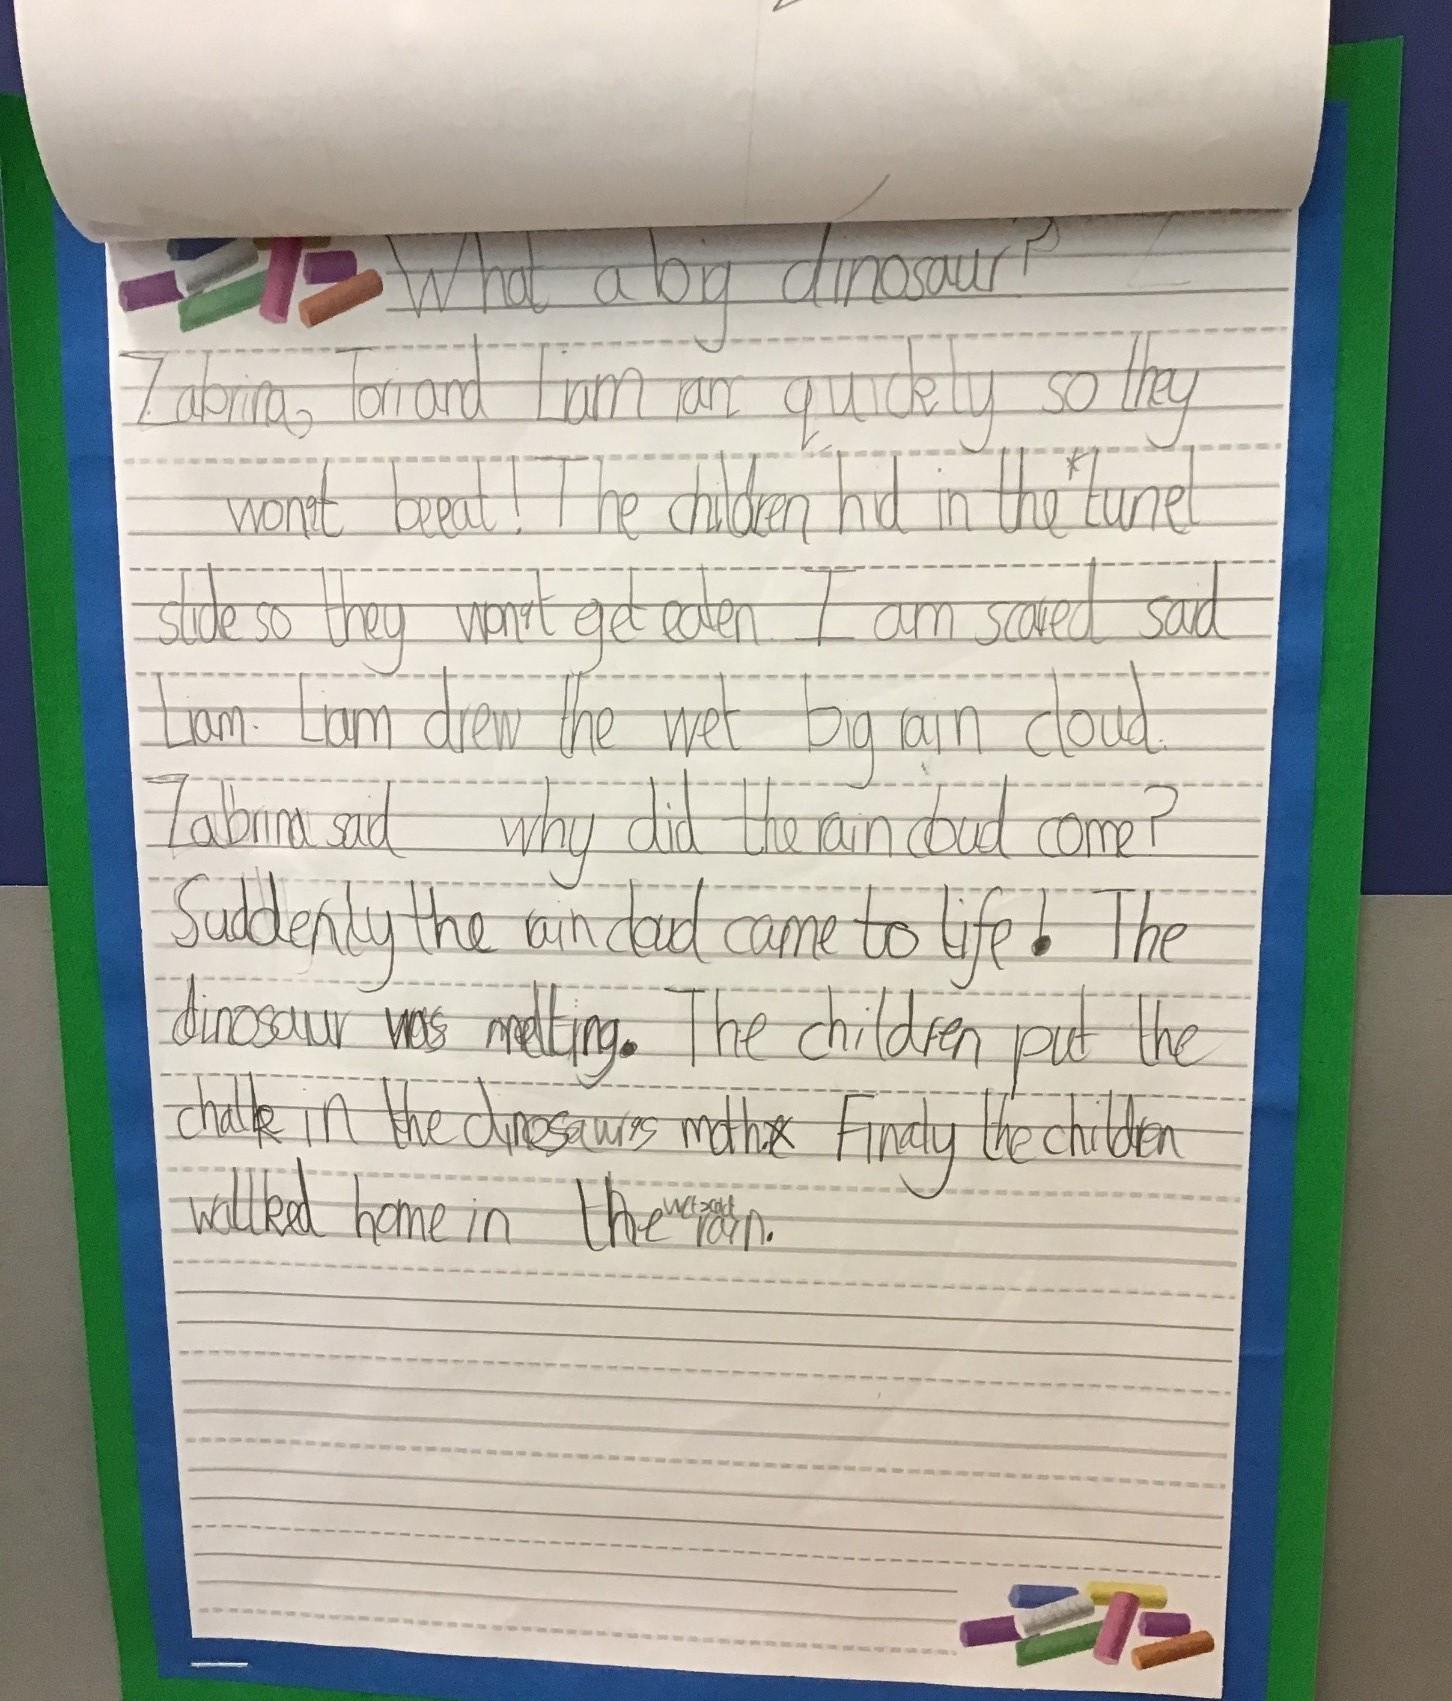 What a big dinosaur?
Zabrina, Tori and Liam ran quickly so they
won't be eat! The children hid in the * tunel
slide so they won't get eaten. I am scared said
Liam. Liam drew the wet big rain cloud.
Zabrina said why did the rain cloud come?
Suddenly the rain cloud came to life! The
dinosaur was melting. The children put the
chalk in the dinosaur's moth. Finaly the children
walked home in the rain.